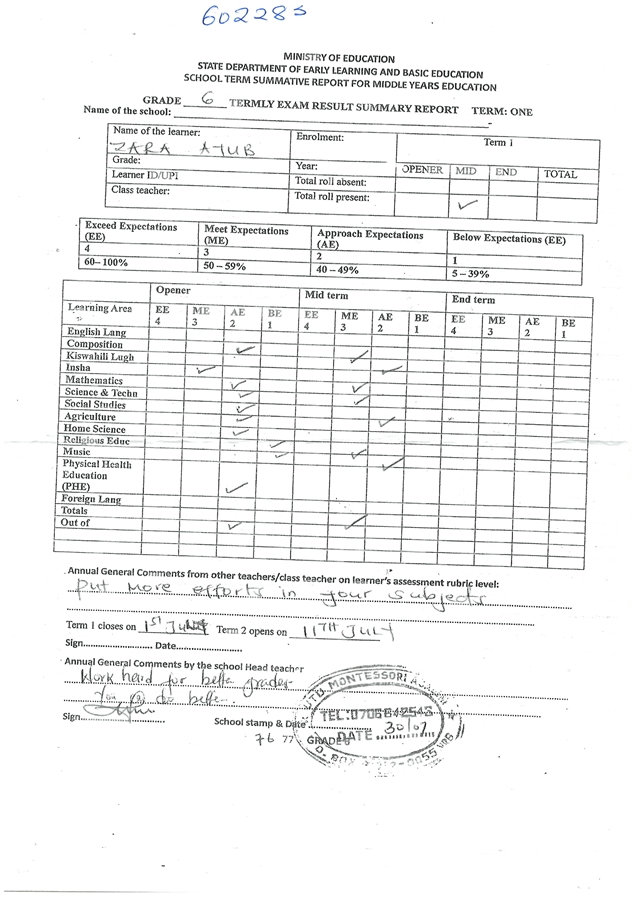 60228s
MINISTRY OF EDUCATION
STATE DEPARTMENT OF EARLY LEARNING AND BASIC EDUCATION
SCHOOL TERM SUMMATIVE REPORT FOR MIDDLE YEARS EDUCATION
GRADE 6 TERMLY EXAM RESULT SUMMARY REPORT TERM: ONE
Name of the school:
Name of the learner: Enrolment: Term 1
ZARA AJUB
Grade: Year: OPENER MID END TOTAL
Learner ID/UPI Total roll absent:
Class teacher: Total roll present: ✓
Exceed Expectations (EE) Meet Expectations (ME) Approach Expectations (AE) Below Expectations (EE)
4 3 2 1
60–100% 50–59% 40–49% 5–39%
Opener Mid term End term
Learning Area EE 4 ME 3 AE 2 BE 1 EE 4 ME 3 AE 2 BE 1 EE 4 ME 3 AE 2 BE 1
English Lang
Composition
Kiswahili Lugh
Insha
Mathematics
Science & Techn
Social Studies
Agriculture
Home Science
Religious Educ
Music
Physical Health
Education
(PHE)
Foreign Lang
Totals
Out of
Annual General Comments from other teachers/class teacher on learner's assessment rubric level:
Put more efforts in your subjects
Term 1 closes on 1ST Term 2 opens on 11TH JULY
Sign Date
Annual General Comments by the school Head teacher
Work hard for better grades
You do better
Sign School stamp & Date
MONTESSORI
TEL:
DATE 30/07
76 77 GRADE
BOX